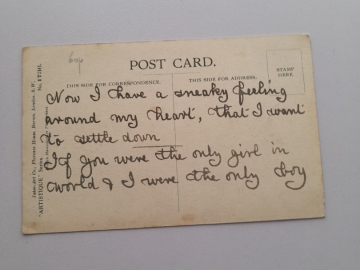 6vp
POST CARD.
THIS SIDE FOR CORRESPONDENCE.
THIS SIDE FOR ADDRESS.
STAMP
HERE.
Now I have a sneaky feeling
around my heart, that I want
to settle down
If you were the only girl in
world & I were the only boy
"ARTISTIQUE" Series.